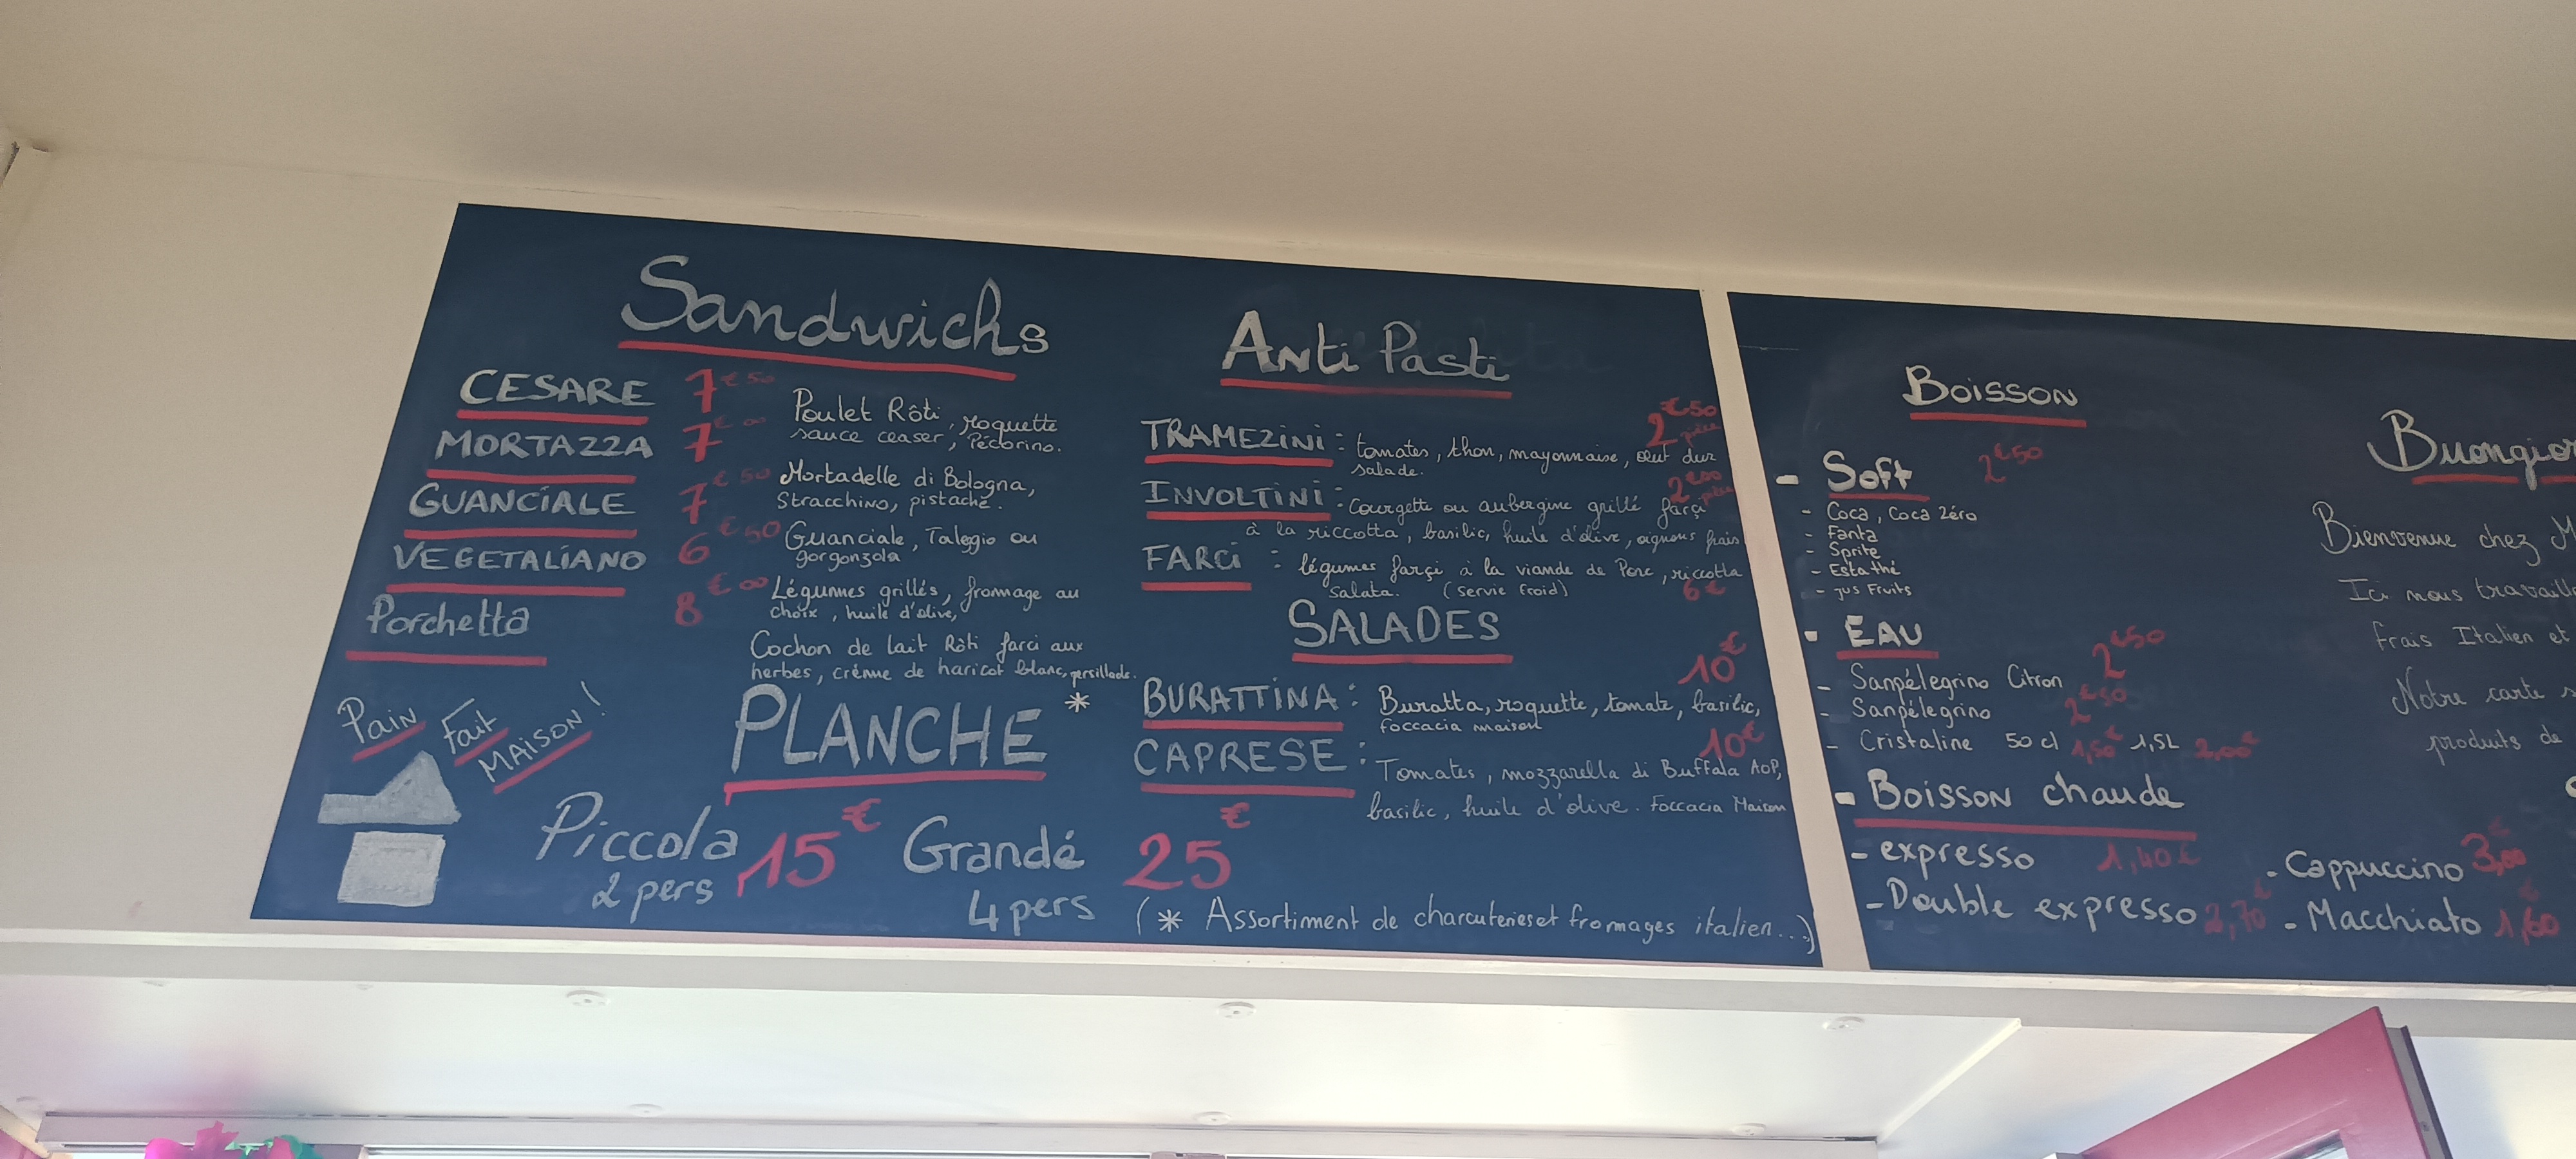 Sandwichs
CESARE 7€50
Poulet Rôti, roquette
sauce ceaser, Pécorino.
MORTAZZA 7€00
Mortadelle di Bologna,
Stracchino, pistache.
GUANCIALE 7€50
Guanciale, Talegio ou
gorgonzola
VEGETALIANO 6€50
Légumes grillés, fromage au
choix, huile d'olive,
Porchetta 8€00
Cochon de lait Rôti farci aux
herbes, crème de haricot blanc, persillade.
Pain
Fait
MAISON!
PLANCHE *
Piccola 15€ Grandé 25€
2 pers 4 pers
(* Assortiment de charcuteries et fromages italien...)
Anti Pasti
2€50
pièce
TRAMEZINI : tomates, thon, mayonnaise, œuf dur
salade.
2€00
pièce
INVOLTINI : courgette ou aubergine grillé farçi
à la riccotta, basilic, huile d'olive, oignons frais
FARCI : légumes farçi à la viande de Porc, riccotta
salata. (servie froid) 6€
SALADES
10€
BURATTINA : Buratta, roquette, tomate, basilic,
foccacia maison
10€
CAPRESE : Tomates, mozzarella di Buffala AOP,
basilic, huile d'olive. Foccacia Maison
BOISSON
- Soft 2€50
- Coca, Coca Zéro
- Fanta
- Sprite
- Estathé
- jus Fruits
- EAU
- Sanpélegrino Citron 2€50
- Sanpélegrino 2€50
- Cristaline 50 cl 1,50€ 1,5L 2,00€
- BOISSON chaude
- expresso 1,40€
- Double expresso 2,70€
- Cappuccino 3,00€
- Macchiato 1,60€
Bienvenue chez
Ici nous
frais Italien et
Notre carte
produits de